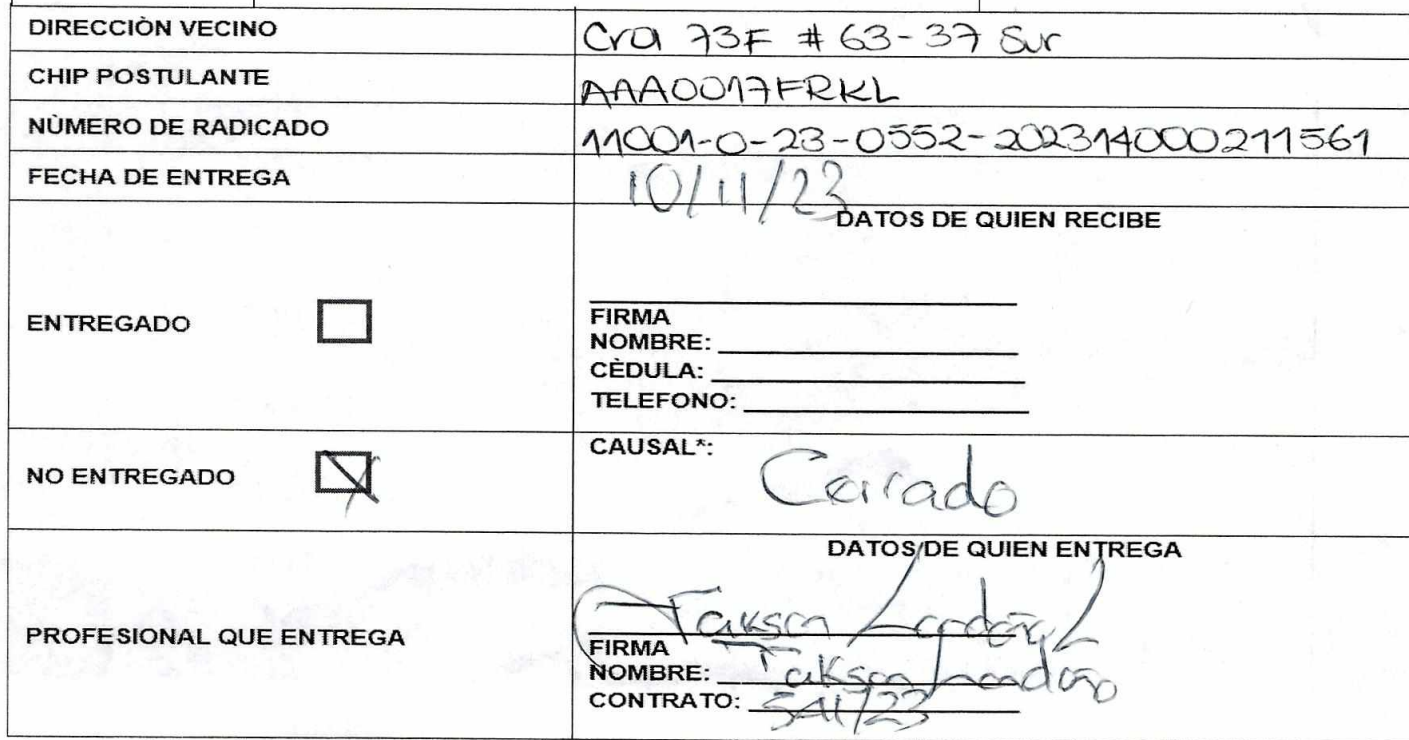 DIRECCIÒN VECINO Cra 73F # 63-37 Sur
CHIP POSTULANTE AAA0017FRKL
NÙMERO DE RADICADO 11001-0-23-0552-202314000211561
FECHA DE ENTREGA 10/11/23
DATOS DE QUIEN RECIBE
ENTREGADO
FIRMA
NOMBRE:
CÈDULA:
TELEFONO:
NO ENTREGADO
CAUSAL*: Cerrado
DATOS DE QUIEN ENTREGA
PROFESIONAL QUE ENTREGA
Jakson Londoño L
FIRMA
NOMBRE: Jakson Londoño
CONTRATO: 541/23